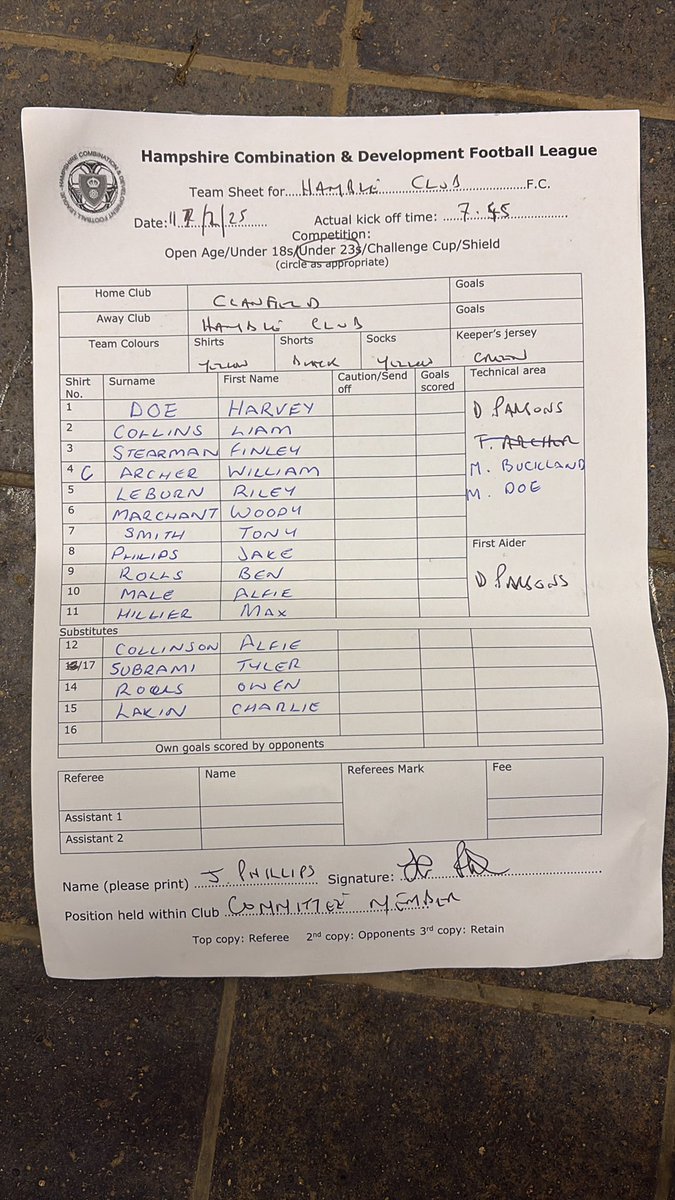 Hampshire Combination & Development Football League
Team Sheet for HAMBLE CLUB F.C.
Date: /2/25 Actual kick off time: 7.45
Competition:
Open Age/Under 18s/Under 23s/Challenge Cup/Shield
(circle as appropriate)
Home Club CLANFIELD Goals
Away Club HAMBLE CLUB Goals
Team Colours Shirts Shorts Socks Keeper's jersey
YELLOW BLACK YELLOW GREEN
Shirt No. Surname First Name Caution/Send off Goals scored Technical area
1 DOE HARVEY D PARSONS
2 COLLINS LIAM
3 STEARMAN FINLEY F. ARCHER
4 C ARCHER WILLIAM M. BUCKLAND
5 LEBURN RILEY M. DOE
6 MARCHANT WOODY
7 SMITH TONY
8 PHILIPS JAKE First Aider
9 ROLLS BEN D PARSONS
10 MALE ALFIE
11 HILLIER MAX
Substitutes
12 COLLINSON ALFIE
13/17 SUBRAMI TYLER
14 OWEN
15 LAKIN CHARLIE
16
Own goals scored by opponents
Referee Name Referees Mark Fee
Assistant 1
Assistant 2
Name (please print) J. PHILLIPS Signature:
Position held within Club COMMITTEE MEMBER
Top copy: Referee 2nd copy: Opponents 3rd copy: Retain